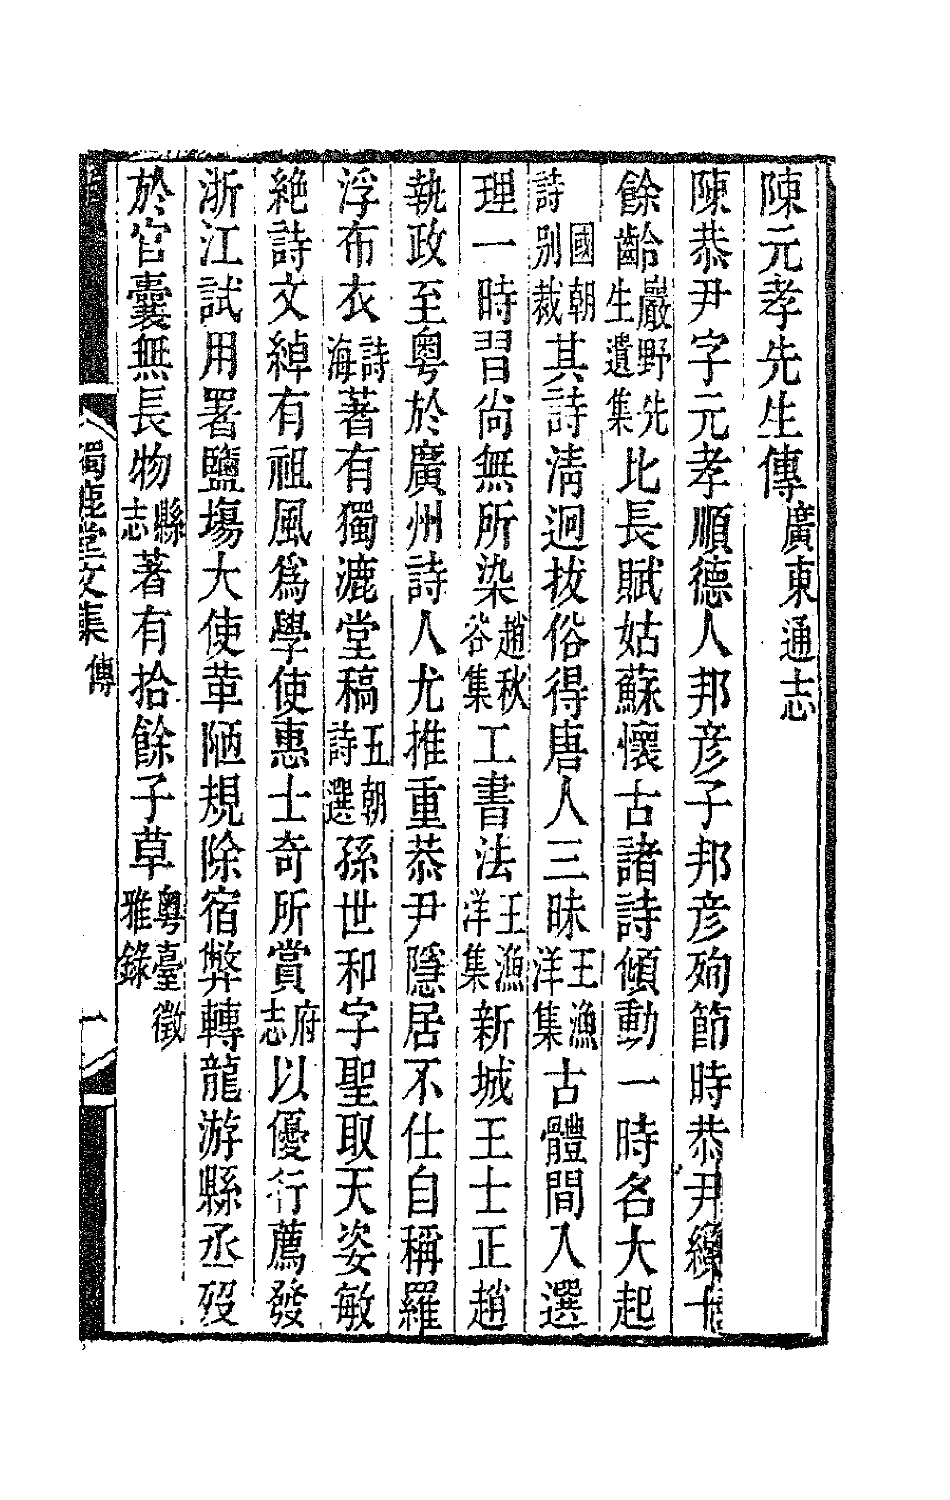 陳元孝先生傳廣東通志
陳恭尹字元孝順德人邦彦子邦彦殉節時恭尹纔十
餘齡嚴野先生遺集比長賦姑蘇懷古諸詩傾動一時名大起
詩國朝别裁其詩清迥拔俗得唐人三昧王漁洋集古體間入選
理一時習尚無所染趙秋谷集工書法王漁洋集新城王士正趙
執政至粤於廣州詩人尤推重恭尹隱居不仕自稱羅
浮布衣詩海著有獨漉堂稿五朝詩選孫世和字聖取天姿敏
絶詩文綽有祖風爲學使惠士奇所賞府志以優行薦發
浙江試用署鹽塲大使革陋規除宿弊轉龍游縣丞殁
於官囊無長物縣志著有拾餘子草粤臺徵雅錄
獨鹿堂文集 傳 一